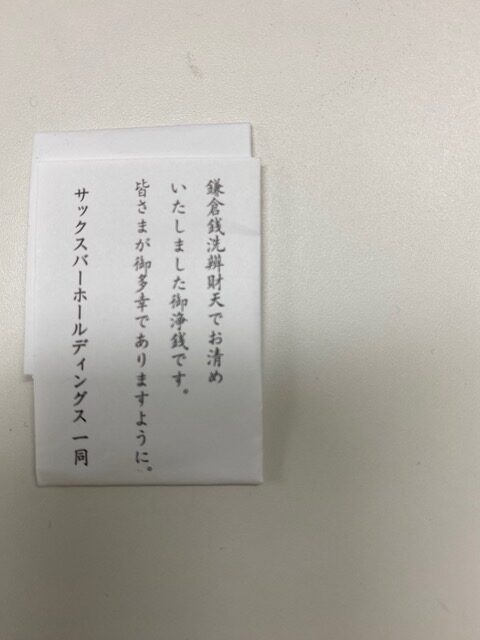 鎌倉銭洗辨財天でお清め
いたしました御浄銭です。
皆さまが御多幸でありますように。
サックスバーホールディングス 一同